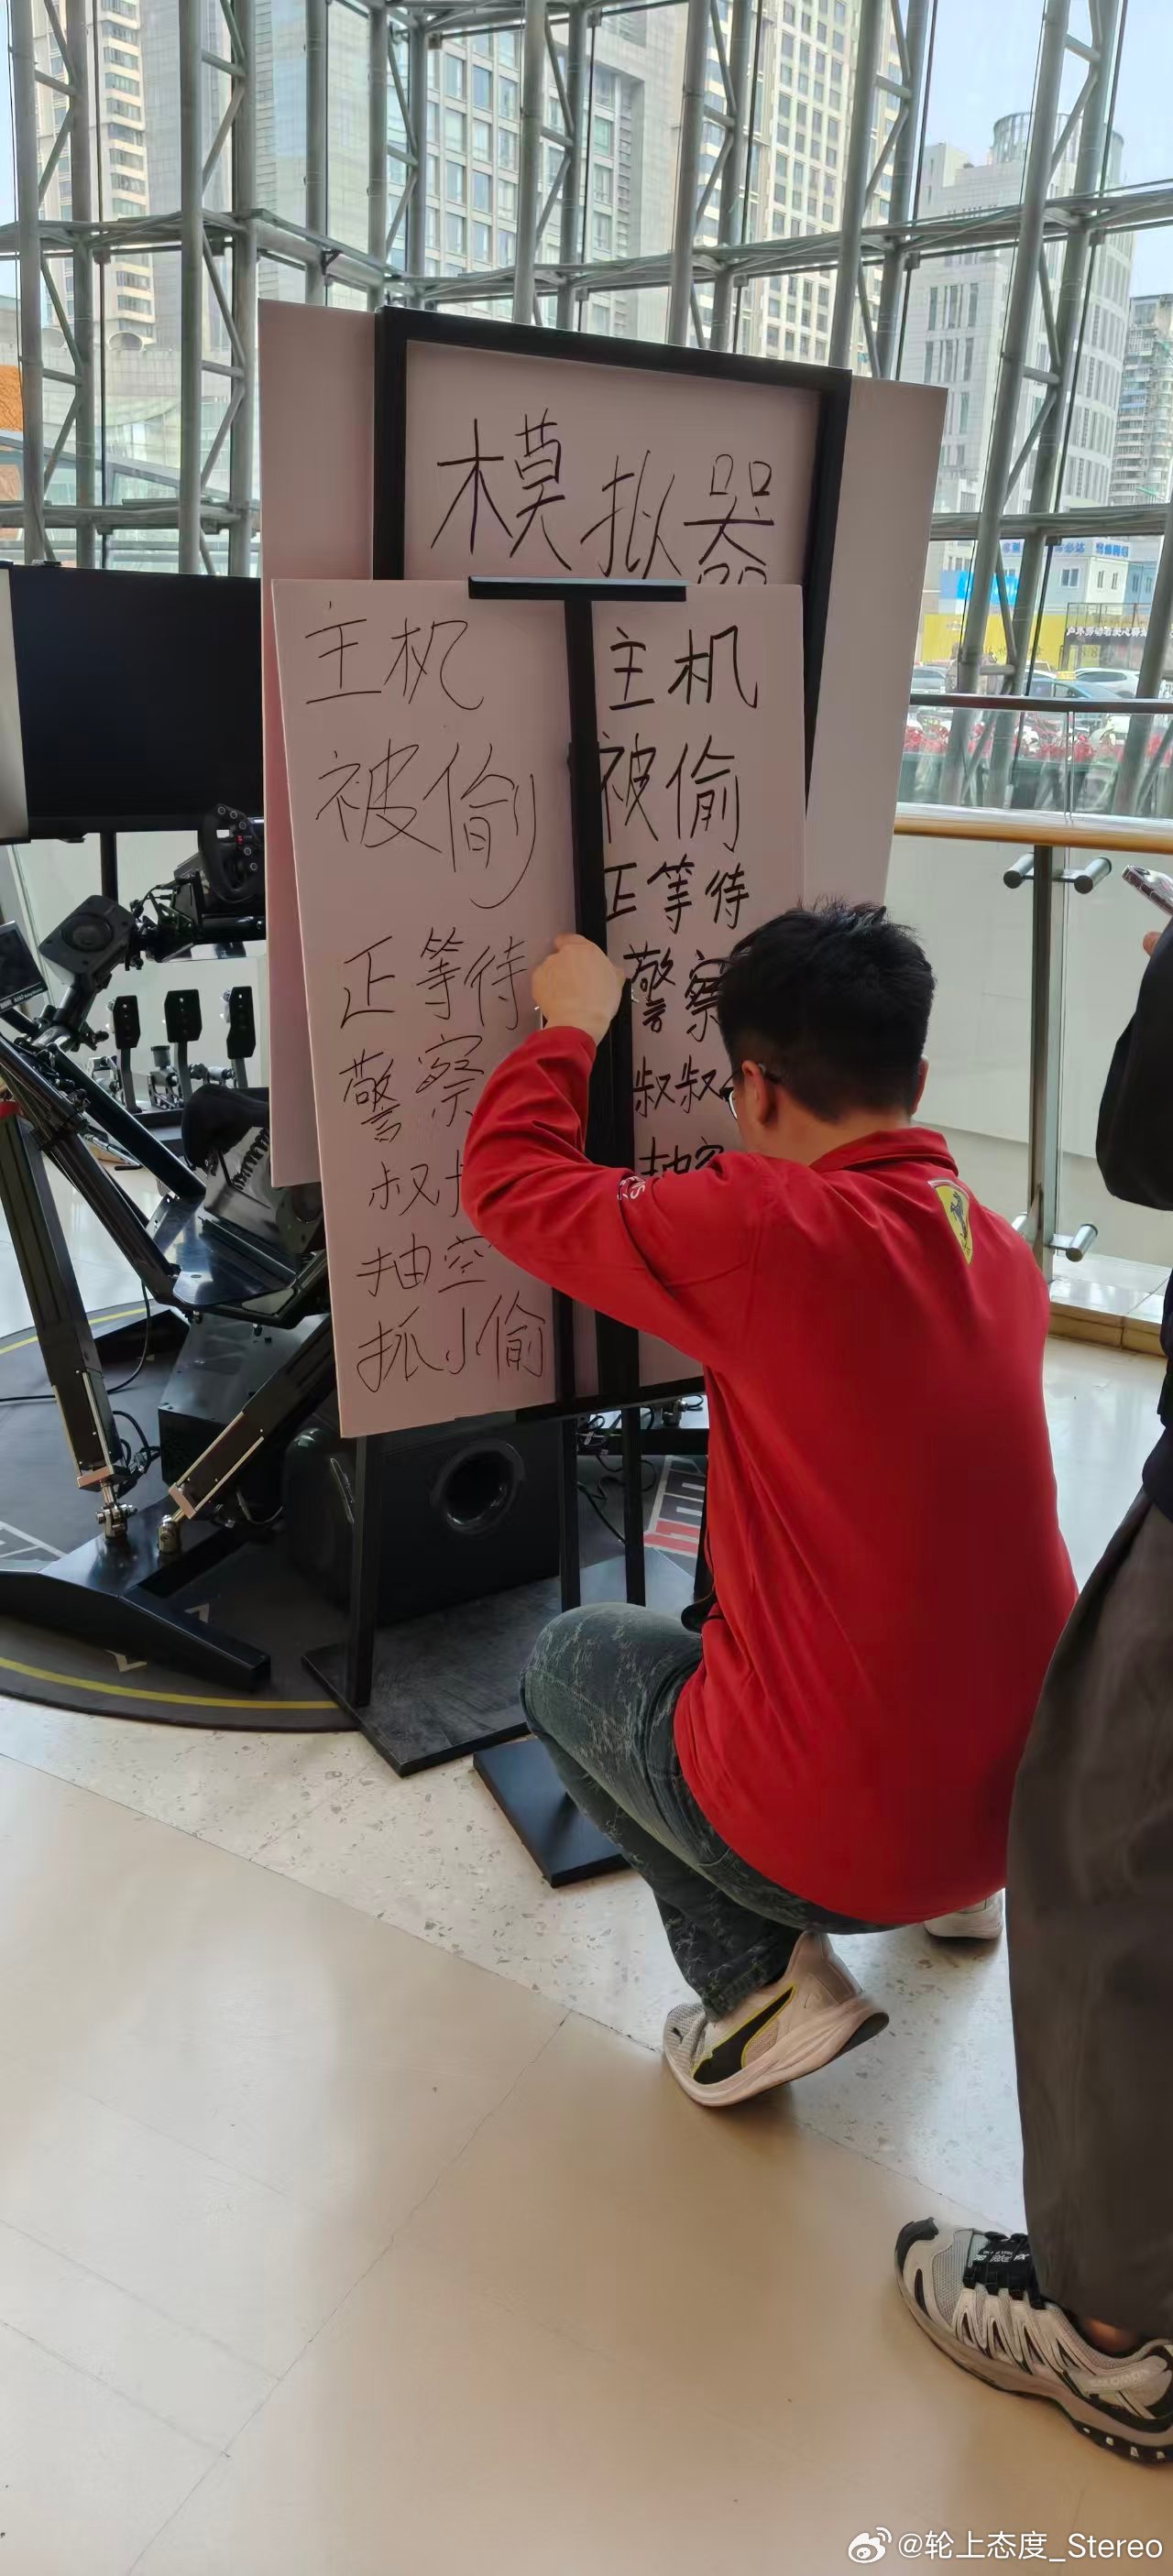 模拟器
主机
被偷
正等待
警察
叔
抽空
抓小偷
主机
被偷
正等待
警察
叔叔
抽空
@轮上态度_Stereo